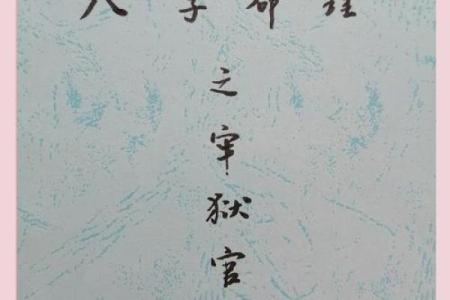 八字命理
之牢狱官